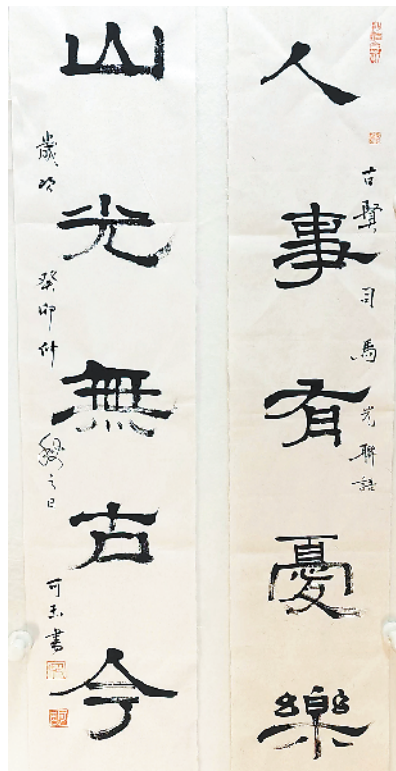 人事有憂樂
古賢司馬光聯語
山光無古今
歲次癸卯仲秋之日
可平書